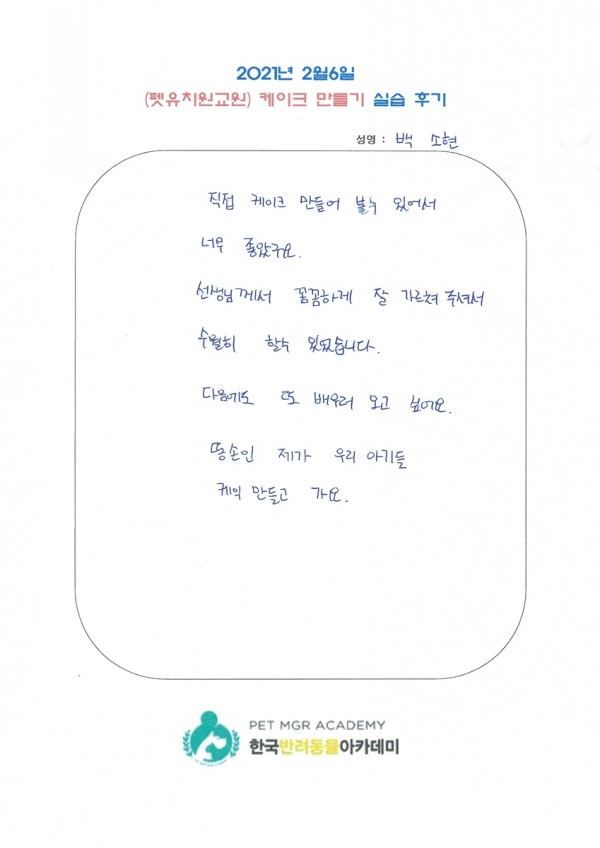 2021년 2월6일
(펫유치원교원) 케이크 만들기 실습 후기
성명 : 백 소현
직접 케이크 만들어 볼수 있어서
너무 좋았구요.
선생님께서 꼼꼼하게 잘 가르쳐 주셔서
수월히 할수 있었습니다.
다음에도 또 배우러 오고 싶어요.
똥손인 제가 우리 아기들
케익 만들고 가요.
PET MGR ACADEMY
한국반려동물아카데미